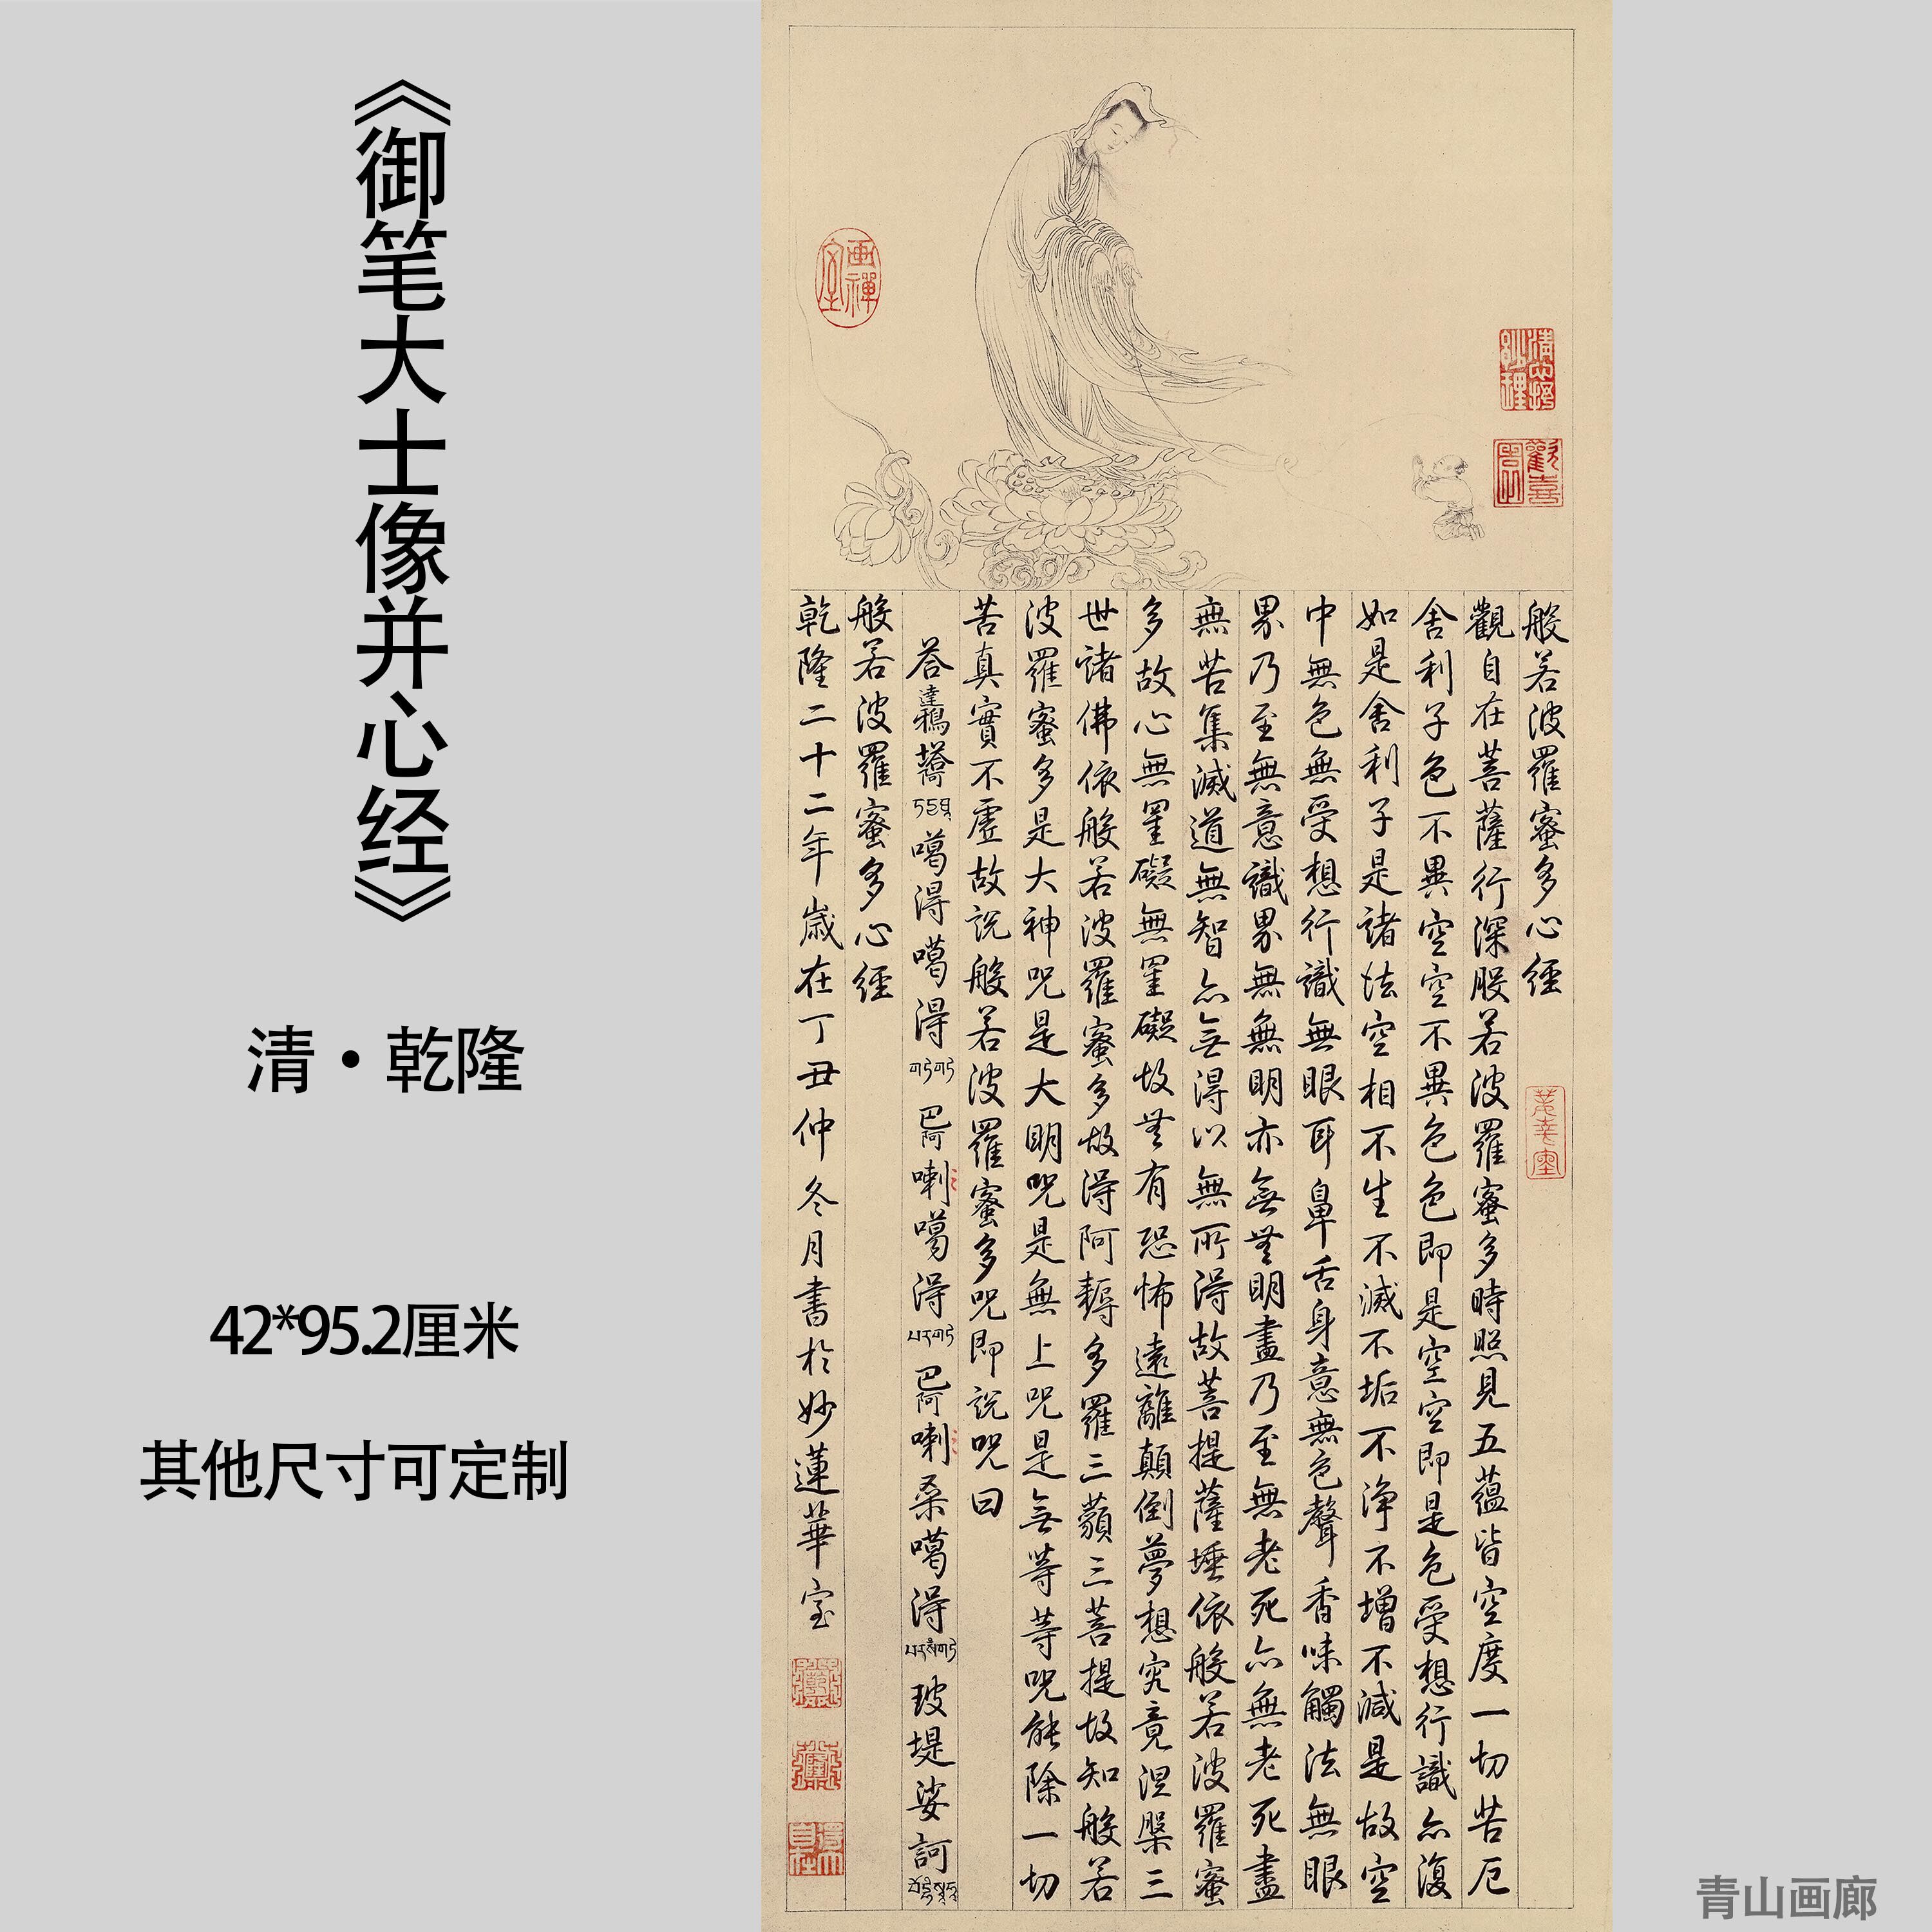 《御笔大士像并心经》
清·乾隆
42*95.2厘米
其他尺寸可定制
般若波羅蜜多心經
觀自在菩薩行深般若波羅蜜多時照見五蘊皆空度一切苦厄
舍利子色不異空空不異色色即是空空即是色受想行識亦復
如是舍利子是諸法空相不生不滅不垢不淨不增不減是故空
中無色無受想行識無眼耳鼻舌身意無色聲香味觸法無眼
界乃至無意識界無無明亦無無明盡乃至無老死亦無老死盡
無苦集滅道無智亦無得以無所得故菩提薩埵依般若波羅蜜
多故心無罣礙無罣礙故無有恐怖遠離顛倒夢想究竟涅槃三
世諸佛依般若波羅蜜多故得阿耨多羅三藐三菩提故知般若
波羅蜜多是大神咒是大明咒是無上咒是無等等咒能除一切
苦真實不虛故說般若波羅蜜多咒即說咒曰
答達鴉塔噶得噶得巴阿喇噶得巴阿喇桑噶得玻堤娑訶
般若波羅蜜多心經
乾隆二十二年歲在丁丑仲冬月書於妙蓮華室
得大自在
青山画廊